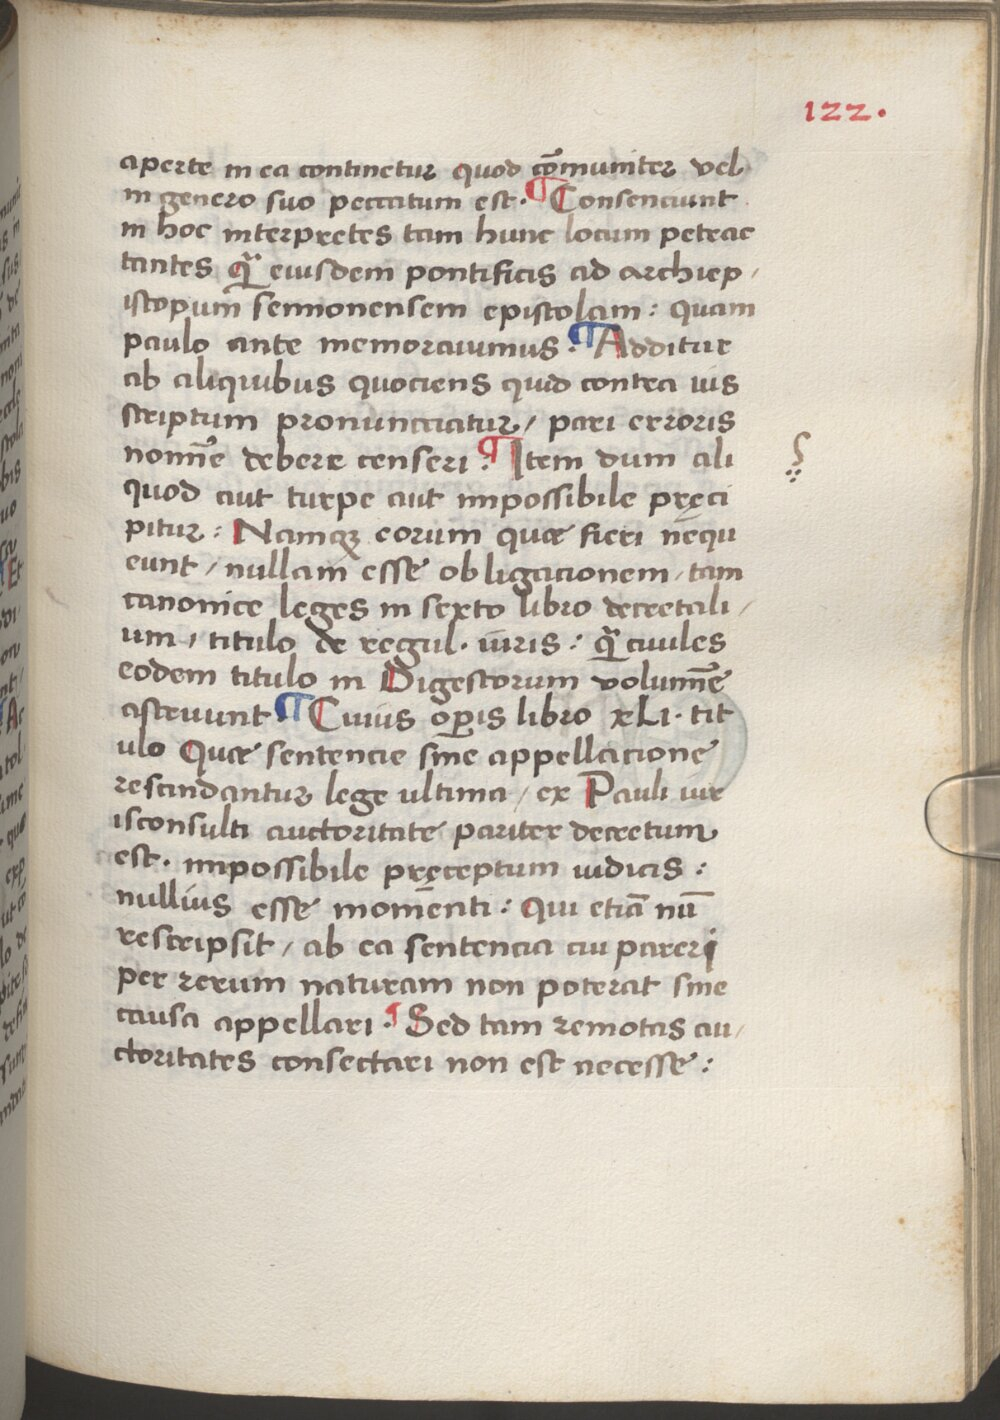 122.
aperte in ea continetur quod cōmuniter vel
in genero suo peccatum est. ¶ Consenciunt
in hoc interpretes tam hunc locum petrac
tantes qͣ̄ eiusdem pontificis ad archiep /
iscopum sennonensem epistolam : quam
paulo ante memoravimus. ¶ Additur
ab aliquibus quociens quid contra ius
scriptum pronunctiatur / pari erroris
nomīe debere censeri : ¶ Item dum ali
quod aut turpe aut impossibile pręci
pitur : Namqꝫ eorum quae fieri nequ
eunt / nullam esse obligacionem / tam
canonice leges in sexto libro decretali /
um / titulo de regul. iuris : qͣ̄ civiles
eodem titulo in Digestorum volumīe
astruunt ¶ Cuius oꝑis libro xLi. tit
ulo Quae sentencie sine appellacione
rescindantur lege ultima / ex Pauli iur
isconsulti auctoritate pariter decretum
est. impossibile pręceptum iudicis :
nullius esse momenti : Qui etiā nū
rescripsit / ab ea sentencia cui pareri
per rerum naturam non poterat sine
causa appellari. ¶ Sed tam remotas au /
ctoritates consectari non est necesse :